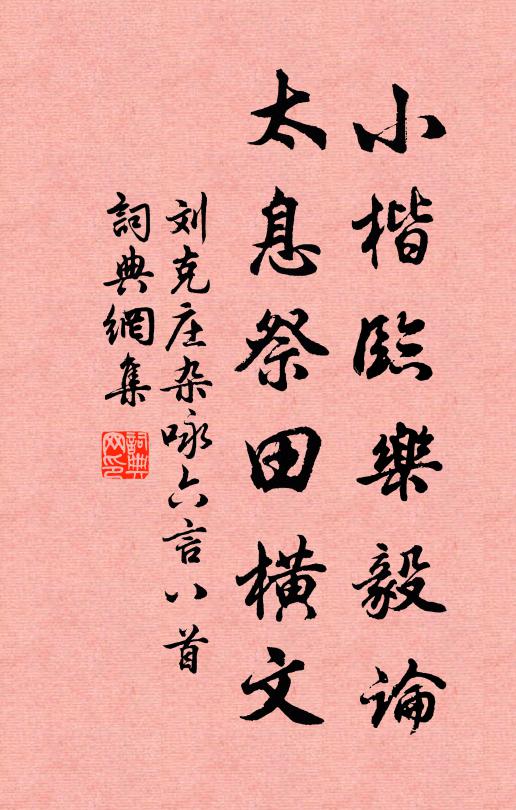 小楷臨樂毅論
太息祭田横文
刘克庄杂咏六言八首
詞典網集
詞典网印